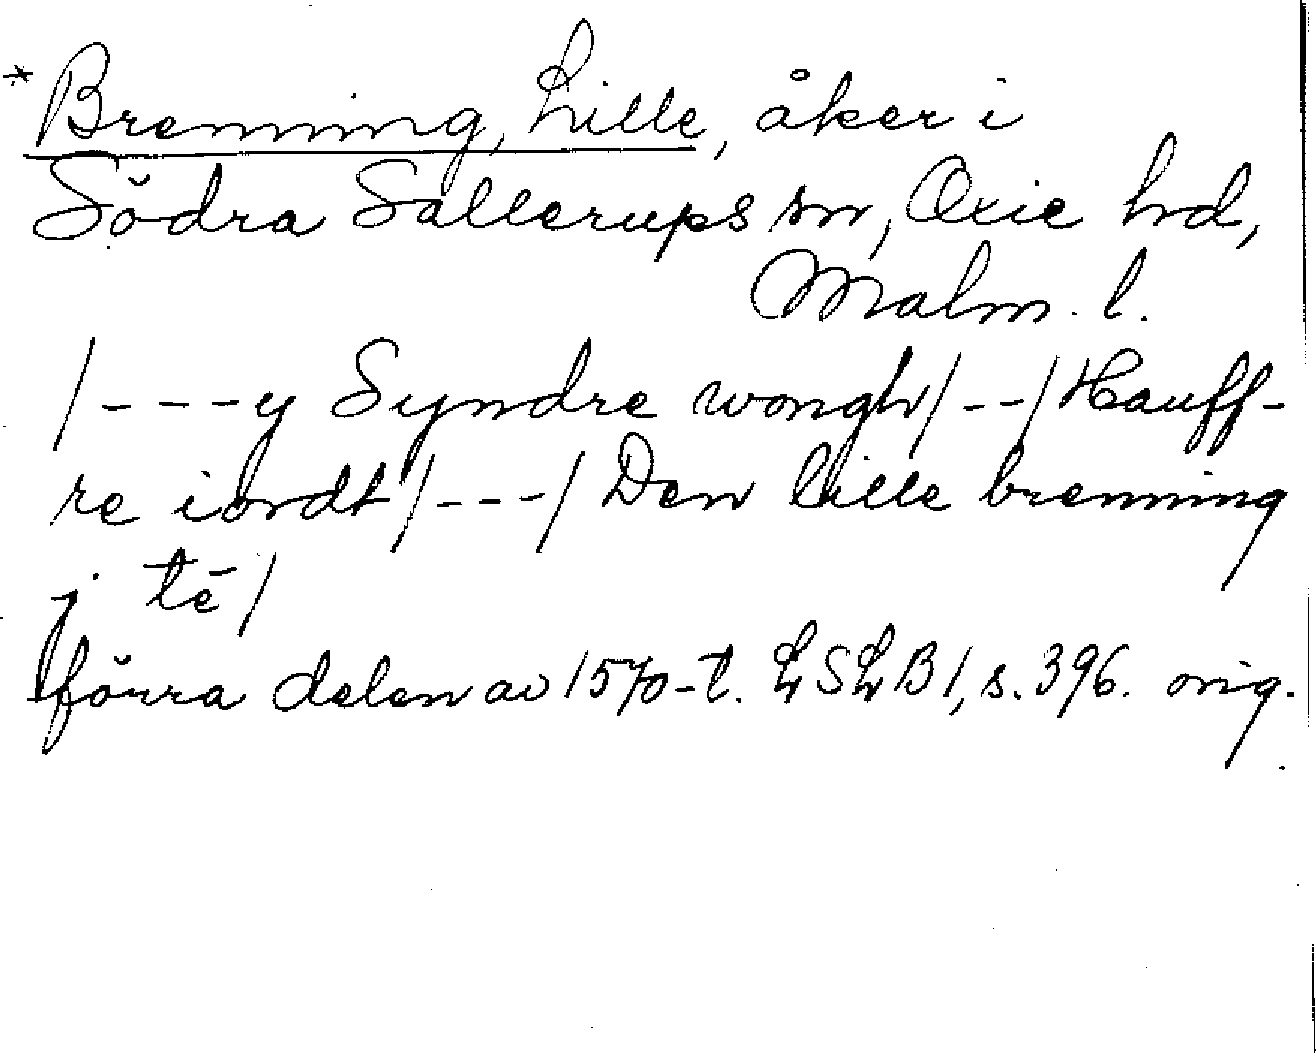 *Brenning, Lille, åker i
Södra Sallerups sn, Oxie hd,
Malm. l.
/---y Syndre wongh/--/Hauff-
re iordt/---/Den lille brenning
j tē/
förra delen av 1570-t. LSLB1, s. 396. orig.